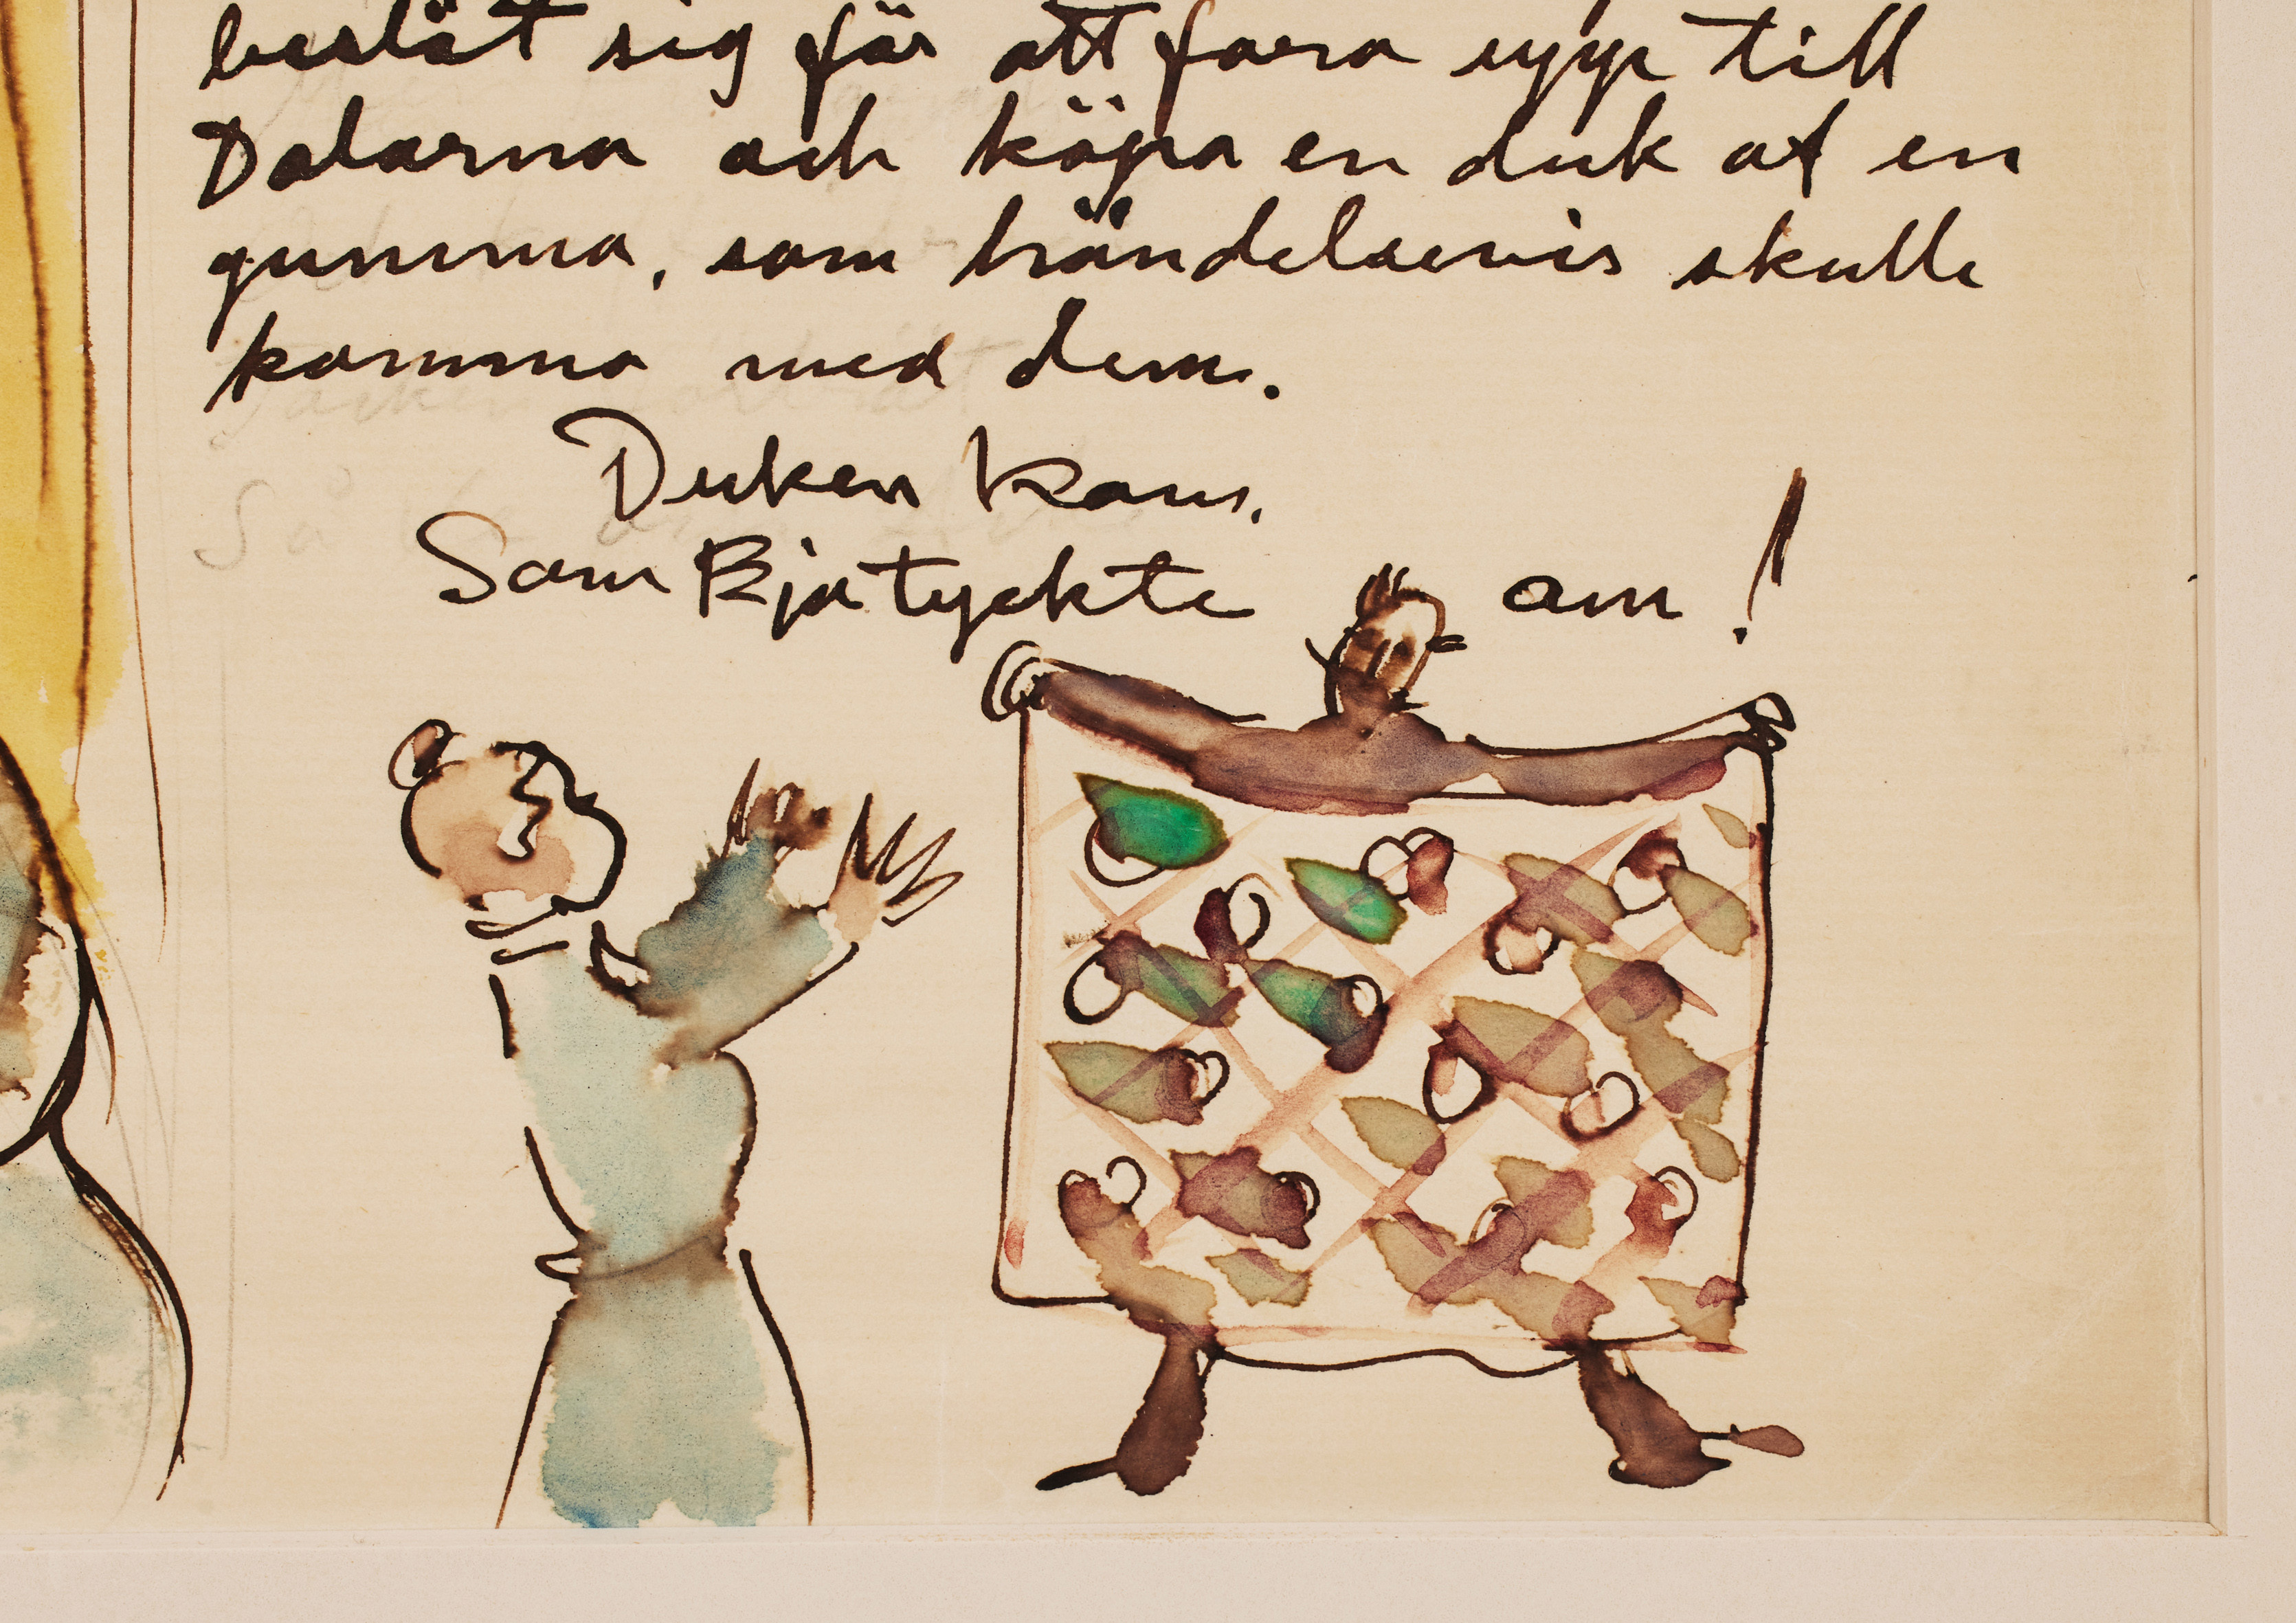 beslöt sig för att fara upp till
Dalarna och köpa en duk af en
gumma, som händelsevis skulle
komma med dem.
Duken kom.
Som Bja tyckte om!